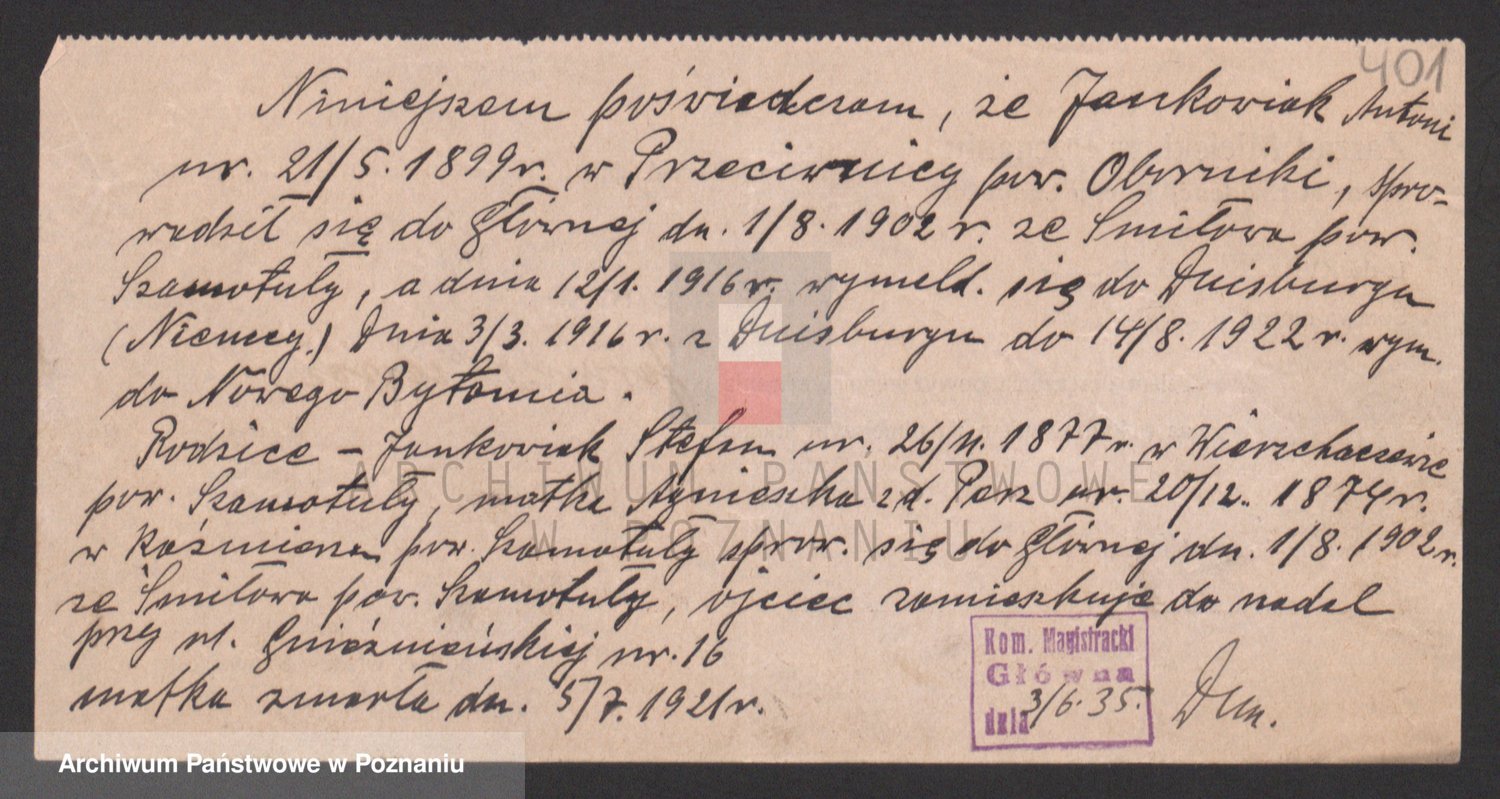 401
Niniejszem poświadczam, że Jankowiak Antoni
ur. 21/5. 1899 r. w Przeciwnicy pow. Oborniki, spro-
wadził się do Głównej dn. 1/8. 1902 r. ze Śmiłowa pow.
Szamotuły, a dnia 12/1. 1916 r. wymeld. się do Duisburgu
(Niemcy.) Dnia 3/3. 1916 r. z Duisburgu do 14/8. 1922 r. wym.
do Nowego Bytomia.
Rodzice – Jankowiak Stefan ur. 26/11. 1877 r. w
pow. Szamotuły, matka Agnieszka z d. Perz ur. 20/12. 1874 r.
w Kaźmierzu pow. Szamotuły sprow. się do Głównej dn. 1/8. 1902 r.
ze Śmiłowa pow. Szamotuły, ojciec zamieszkuje do nadal
przy ul. Gnieźnieńskiej nr. 16
matka zmarła dn. 5/7. 1921 r.
Kom. Magistracki
Główna
dnia 3/6. 35.
ARCHIWUM PAŃSTWOWE
W POZNANIU
Archiwum Państwowe w Poznaniu